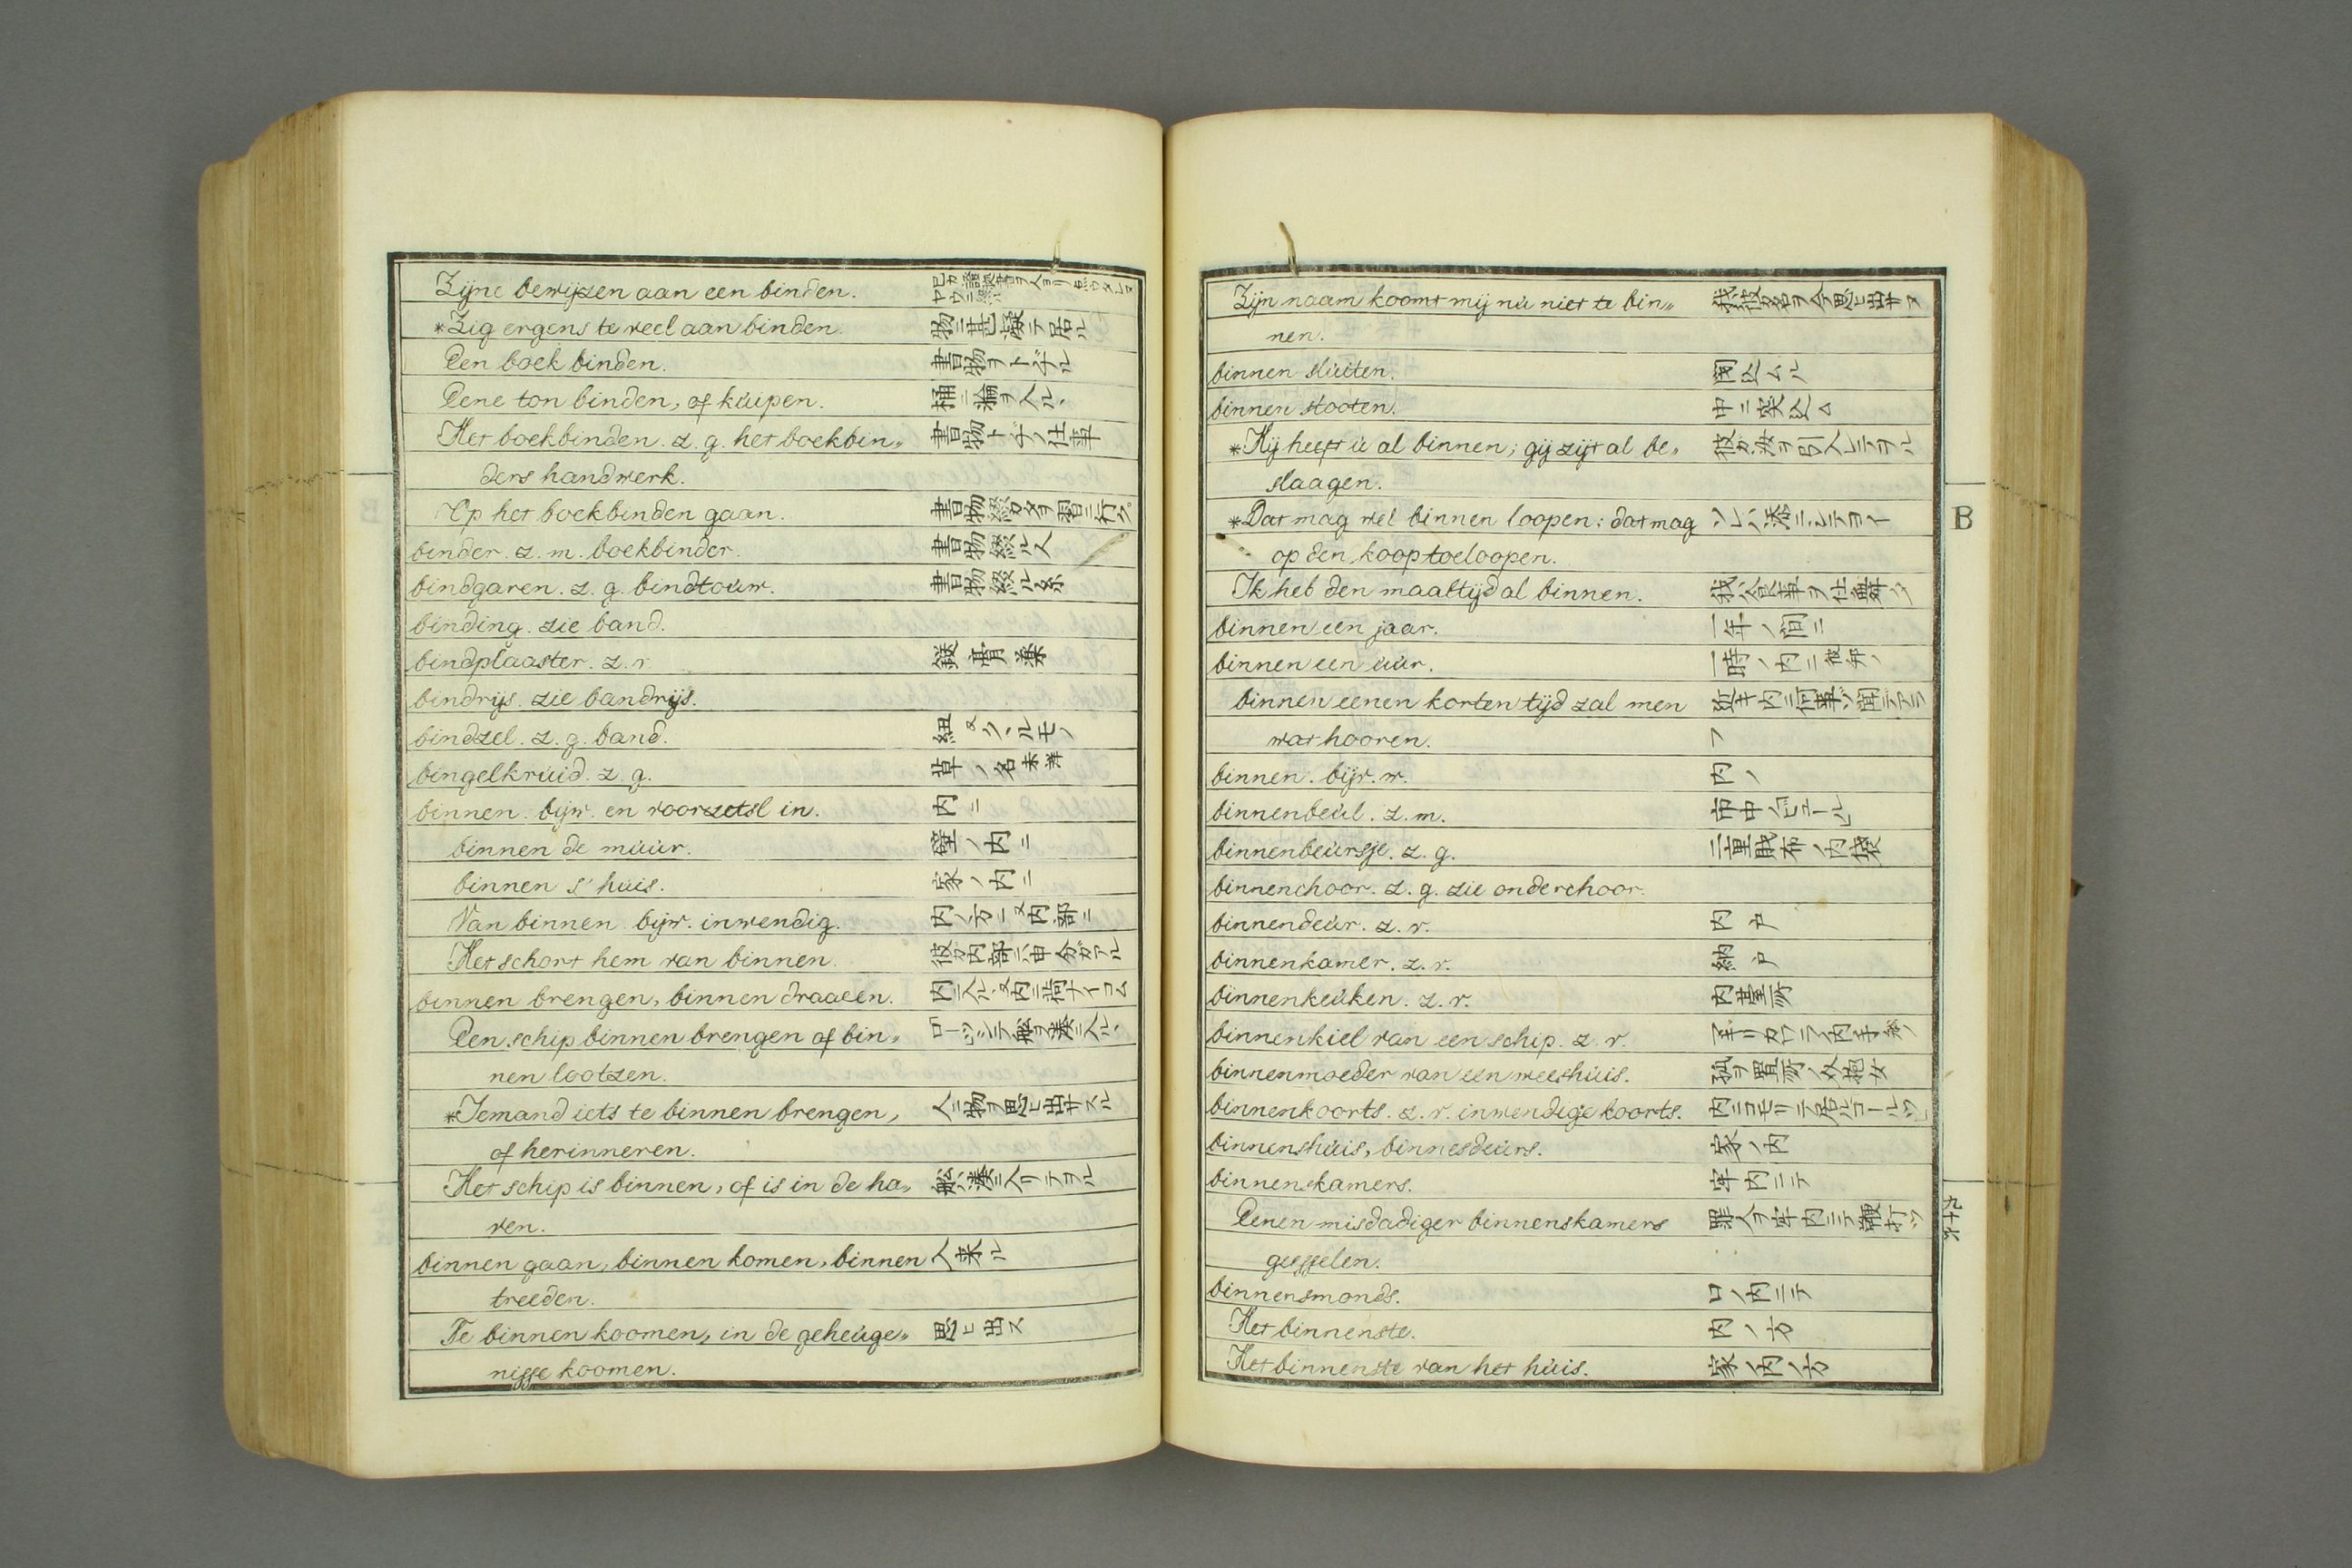 Zijne bewijzen aan een binden.
*Zig ergens te veel aan binden. 物ニ甚凝テ居ル
Een boek binden. 書物ヲトヂル
Eene ton binden, of kuipen. 桶ニ輪ヲ入ル、
Het boekbinden. z. g. het boekbin„ 書物トヂノ仕事
ders handwerk.
Op het boekbinden gaan.
binder. z. m. boekbinder. 書物綴ル人
bindgaren. z. g. bindtouw. 書物綴ル糸
binding. zie band.
bindplaaster. z. v.
bindrijs. zie bandrijs.
bindzel. z. g. band.
bingelkruid. z. g. 草ノ名未詳
binnen. bijw. en voorzetsl in. 内ニ
binnen de muur. ノ内ニ
binnen s' huis. 家ノ内ニ
Van binnen bijw. inwendig. 内ノ方ニ又内部ニ
Het schort hem van binnen.
binnen brengen, binnen draaeen.
Een schip binnen brengen of bin„
nen lootzen.
*Iemand iets te binnen brengen, 人ニ物ヲ思ヒ出サスル
of herinneren.
Het schip is binnen, of is in de ha„ 舩湊ニ入リテヲル
ven.
binnen gaan, binnen komen, binnen 入来ル
treeden.
Te binnen koomen, in de geheuge„ 思ヒ出ス
nisse koomen.
Zijn naam koomt mij nu niet te bin„ 我彼カ名ヲ今思ヒ出サヌ
nen.
binnen sluiten.
binnen stooten. 中ニ突込ム
*Hij heeft u al binnen; gij zijt al be„
slaagen.
*Dat mag wel binnen loopen: dat mag
op den koop toeloopen.
Ik heb den maaltijd al binnen.
binnen een jaar. 一年ノ間ニ
binnen een uur. 一時ノ内ニ
binnen eenen korten tijd zal men
wat hooren.
binnen. bijv. w. 内ノ
binnenbeul. z. m.
binnenbeursje. z. g. 二重財布ノ内袋
binnenchoor. z. g. zie onderchoor.
binnendeur. z. v. 内戸
binnenkamer. z. v. 納戸
binnenkeuken. z. v. 内臺所
binnenkiel van een schip. z. v.
binnenmoeder van een weeshuis.
binnenkoorts. z. v. inwendige koorts.
binnenshuis, binnesdeurs. 家ノ内
binnenskamers. 牢内ニテ
Eenen misdadiger binnenskamers 罪人ヲ牢内ニテ鞭打ツ
geesselen.
binnensmonds. 口ノ内ニテ
Het binnenste. 内ノ方
Het binnenste van het huis. 家ノ内ノ方
B
九十六